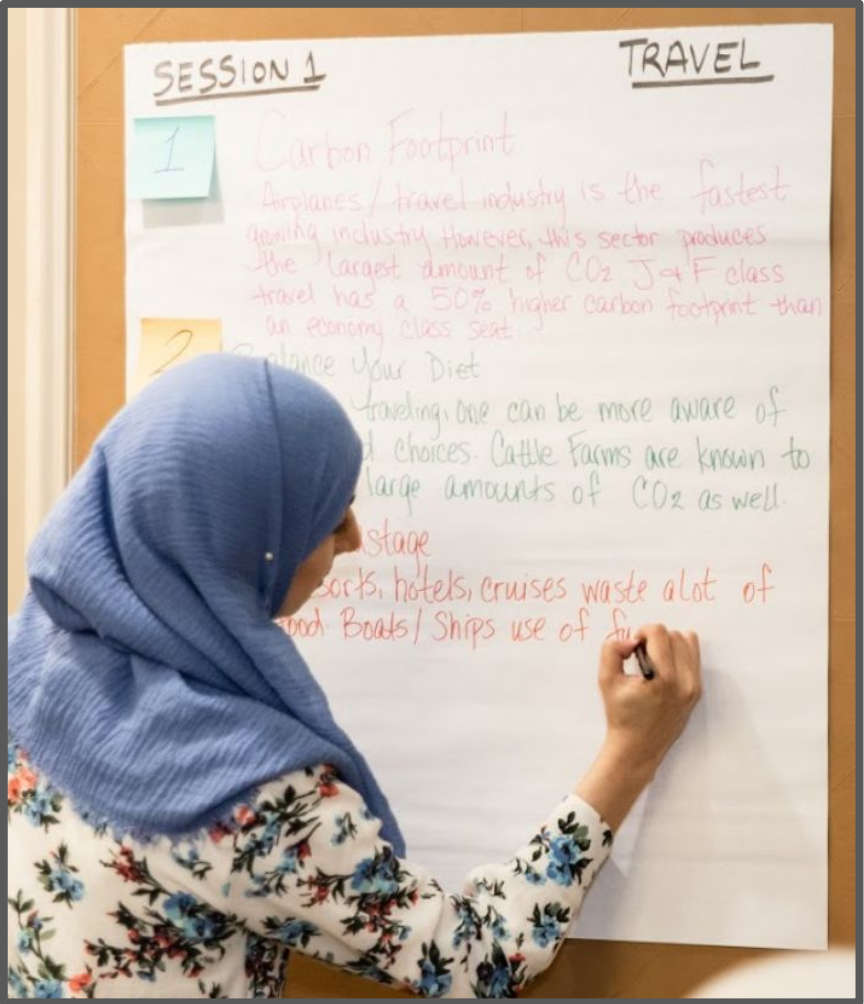 SESSION 1
TRAVEL
1
Carbon Footprint
Airplanes / travel industry is the fastest
growing industry However, this sector produces
the largest amount of CO2 J & F class
travel has a 50% higher carbon footprint than
an economy class seat.
2
Your Diet
traveling, one can be more aware of
choices. Cattle Farms are known to
large amounts of CO2 as well.
hotels, cruises waste alot of
food. Boats / Ships use of